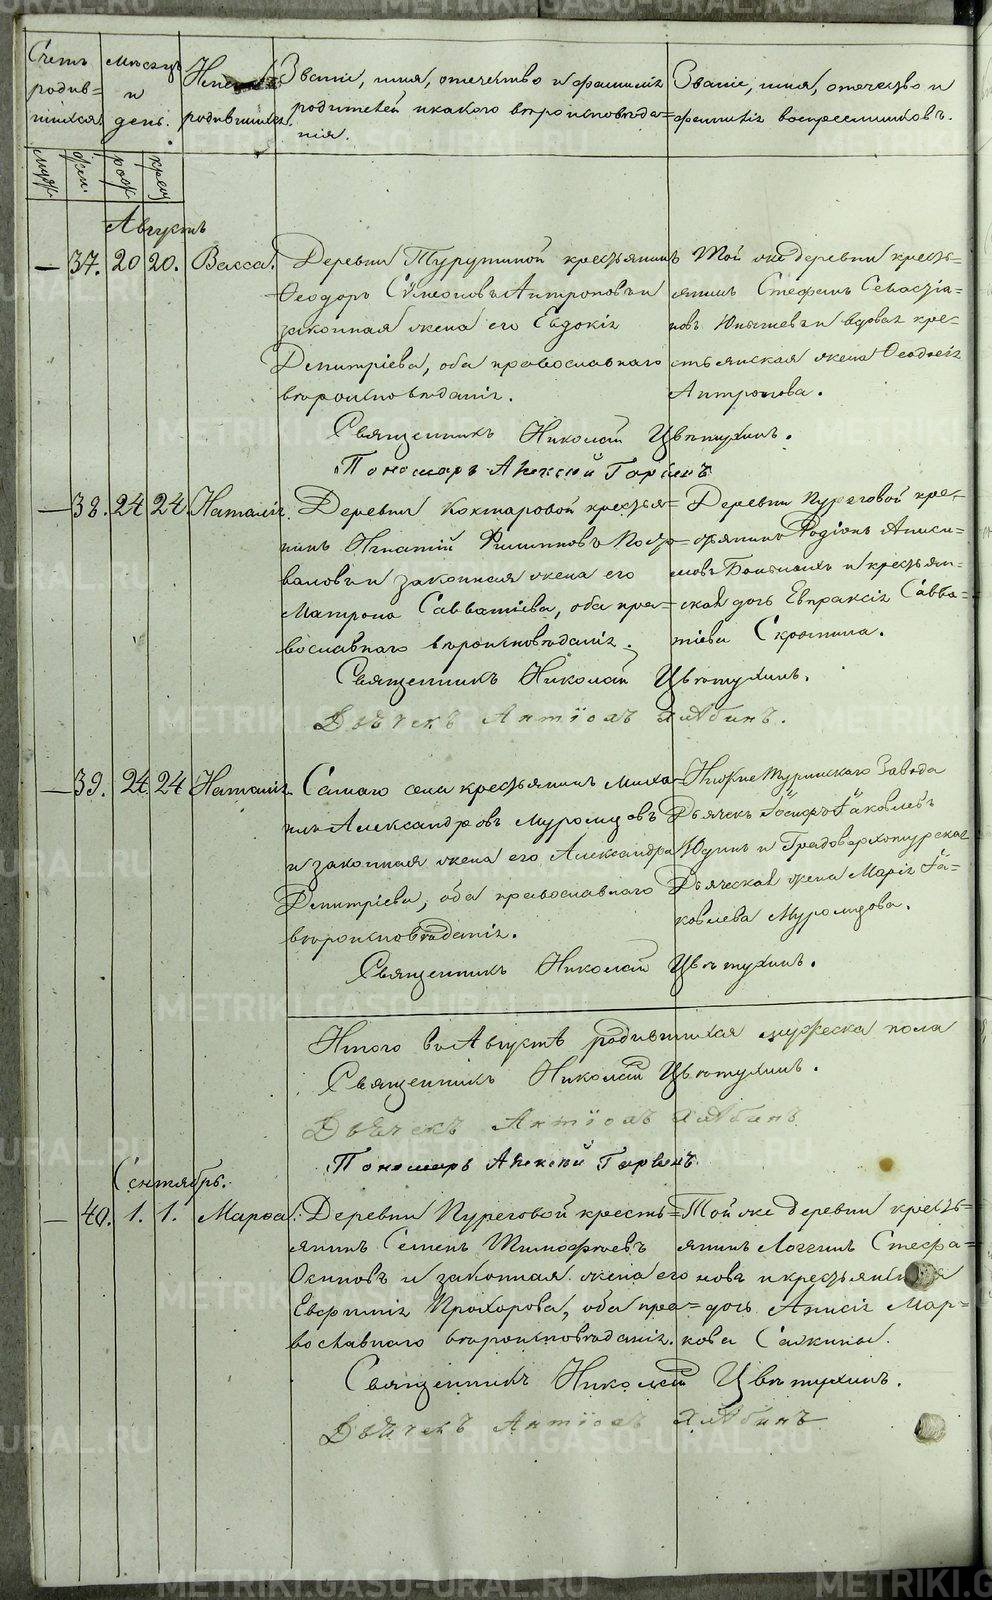 Счетъ родив-шихся.
Мѣсяцъ и день.
Имена родившихся.
Званіе, имя, отечество и фамилія
родителей и какого вѣроисповѣда=
нія.
Званіе, имя, отечество и
фамилія воспреемниковъ.
муж. жен. рож. крещ
Августъ
— 37. 20 20. Васса.
Деревни Турутиной крестьянинъ
Ѳеодоръ Сѵмеоновъ Антроповъ и
законная жена его Евдокія
Димитріева, оба православнаго
вѣроисповѣданія.
Той же деревни кресть-
янинъ Стефанъ Севастіа-
новъ и вдовая кре-
стьянская жена Ѳеодосія
Антропова.
Священникъ Николай Цвѣтухинъ.
Пономарь Алексѣй Горбинъ
— 38. 24 24. Наталія.
Деревни Кокшаровой крестья=
нинъ Игнатій Филипповъ
и законная жена его
Матрона Савватіева, оба пра-
вославнаго вѣроисповѣданія.
Деревни Пуреговой кре-
стьянинъ Родіонъ Аниси-
мовъ и крестьян-
ская дочь Евпраксія Савва-
тіева
Священникъ Николай Цвѣтухинъ.
Дьячекъ
— 39. 24 24 Наталія.
Самаго села крестьянинъ Миха-
илъ Александровъ Муромцовъ
и законная жена его Александра
Димитріева, оба православнаго
вѣроисповѣданія.
Нижне Туринскаго Завода
Дьячекъ Іосифъ Іаковлевъ
Юдинъ и Градоверхотурская
Дьяческая жена Марія Іа-
ковлева Муромцова.
Священникъ Николай Цвѣтухинъ.
Итого въ Августѣ родившихся мужеска пола
Священникъ Николай Цвѣтухинъ.
Дьячекъ
Пономарь Алексѣй Горбинъ
Сентябрь.
— 40. 1. 1. Марѳа.
Деревни Пуреговой кресть=
янинъ Семенъ Тимофѣевъ
Осиповъ и законная жена его
Евфимія Прохорова, оба пра=
вославнаго вѣроисповѣданія.
Той же деревни кресть-
янинъ Логгинъ Стефа-
новъ и крестьянская
дочь Анисія Мар-
кова Салкина.
Священникъ Николай Цвѣтухинъ.
Дьячекъ
METRIKI.GASO-URAL.RU